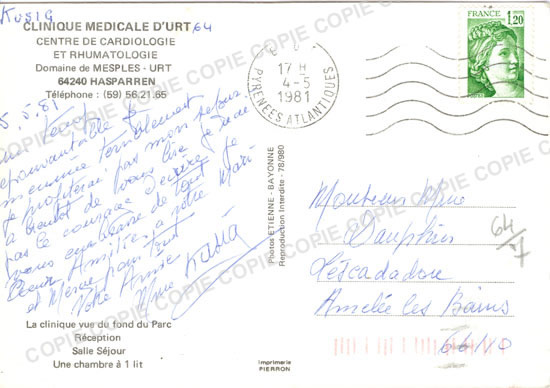 Kusig 64
CLINIQUE MEDICALE D'URT
CENTRE DE CARDIOLOGIE
ET RHUMATOLOGIE
Domaine de MESPLES - URT
64240 HASPARREN
Téléphone : (59) 56.21.65
5.5.81
Temps
épouvantable
m'ennuie terriblement
Je profiterai pas mon retour
à bientôt de vous lire je n'ai
pas le courage d'écrire je
vous embrasse de tout
Cœur Amitiés à votre Mari
et Merci pour tout
Votre Amie
Mme Kusig
La clinique vue du fond du Parc
Réception
Salle Séjour
Une chambre à 1 lit
Photos ETIENNE - BAYONNE
Reproduction Interdite - 78/980
Imprimerie
PIERRON
17 H
4-5
1981
PYRENEES ATLANTIQUES
FRANCE
1,20
Monsieur Mme
Dauphin
L'Escadadou
Amélie les Bains
66110
64
COPIE COPIE COPIE COPIE COPIE COPIE